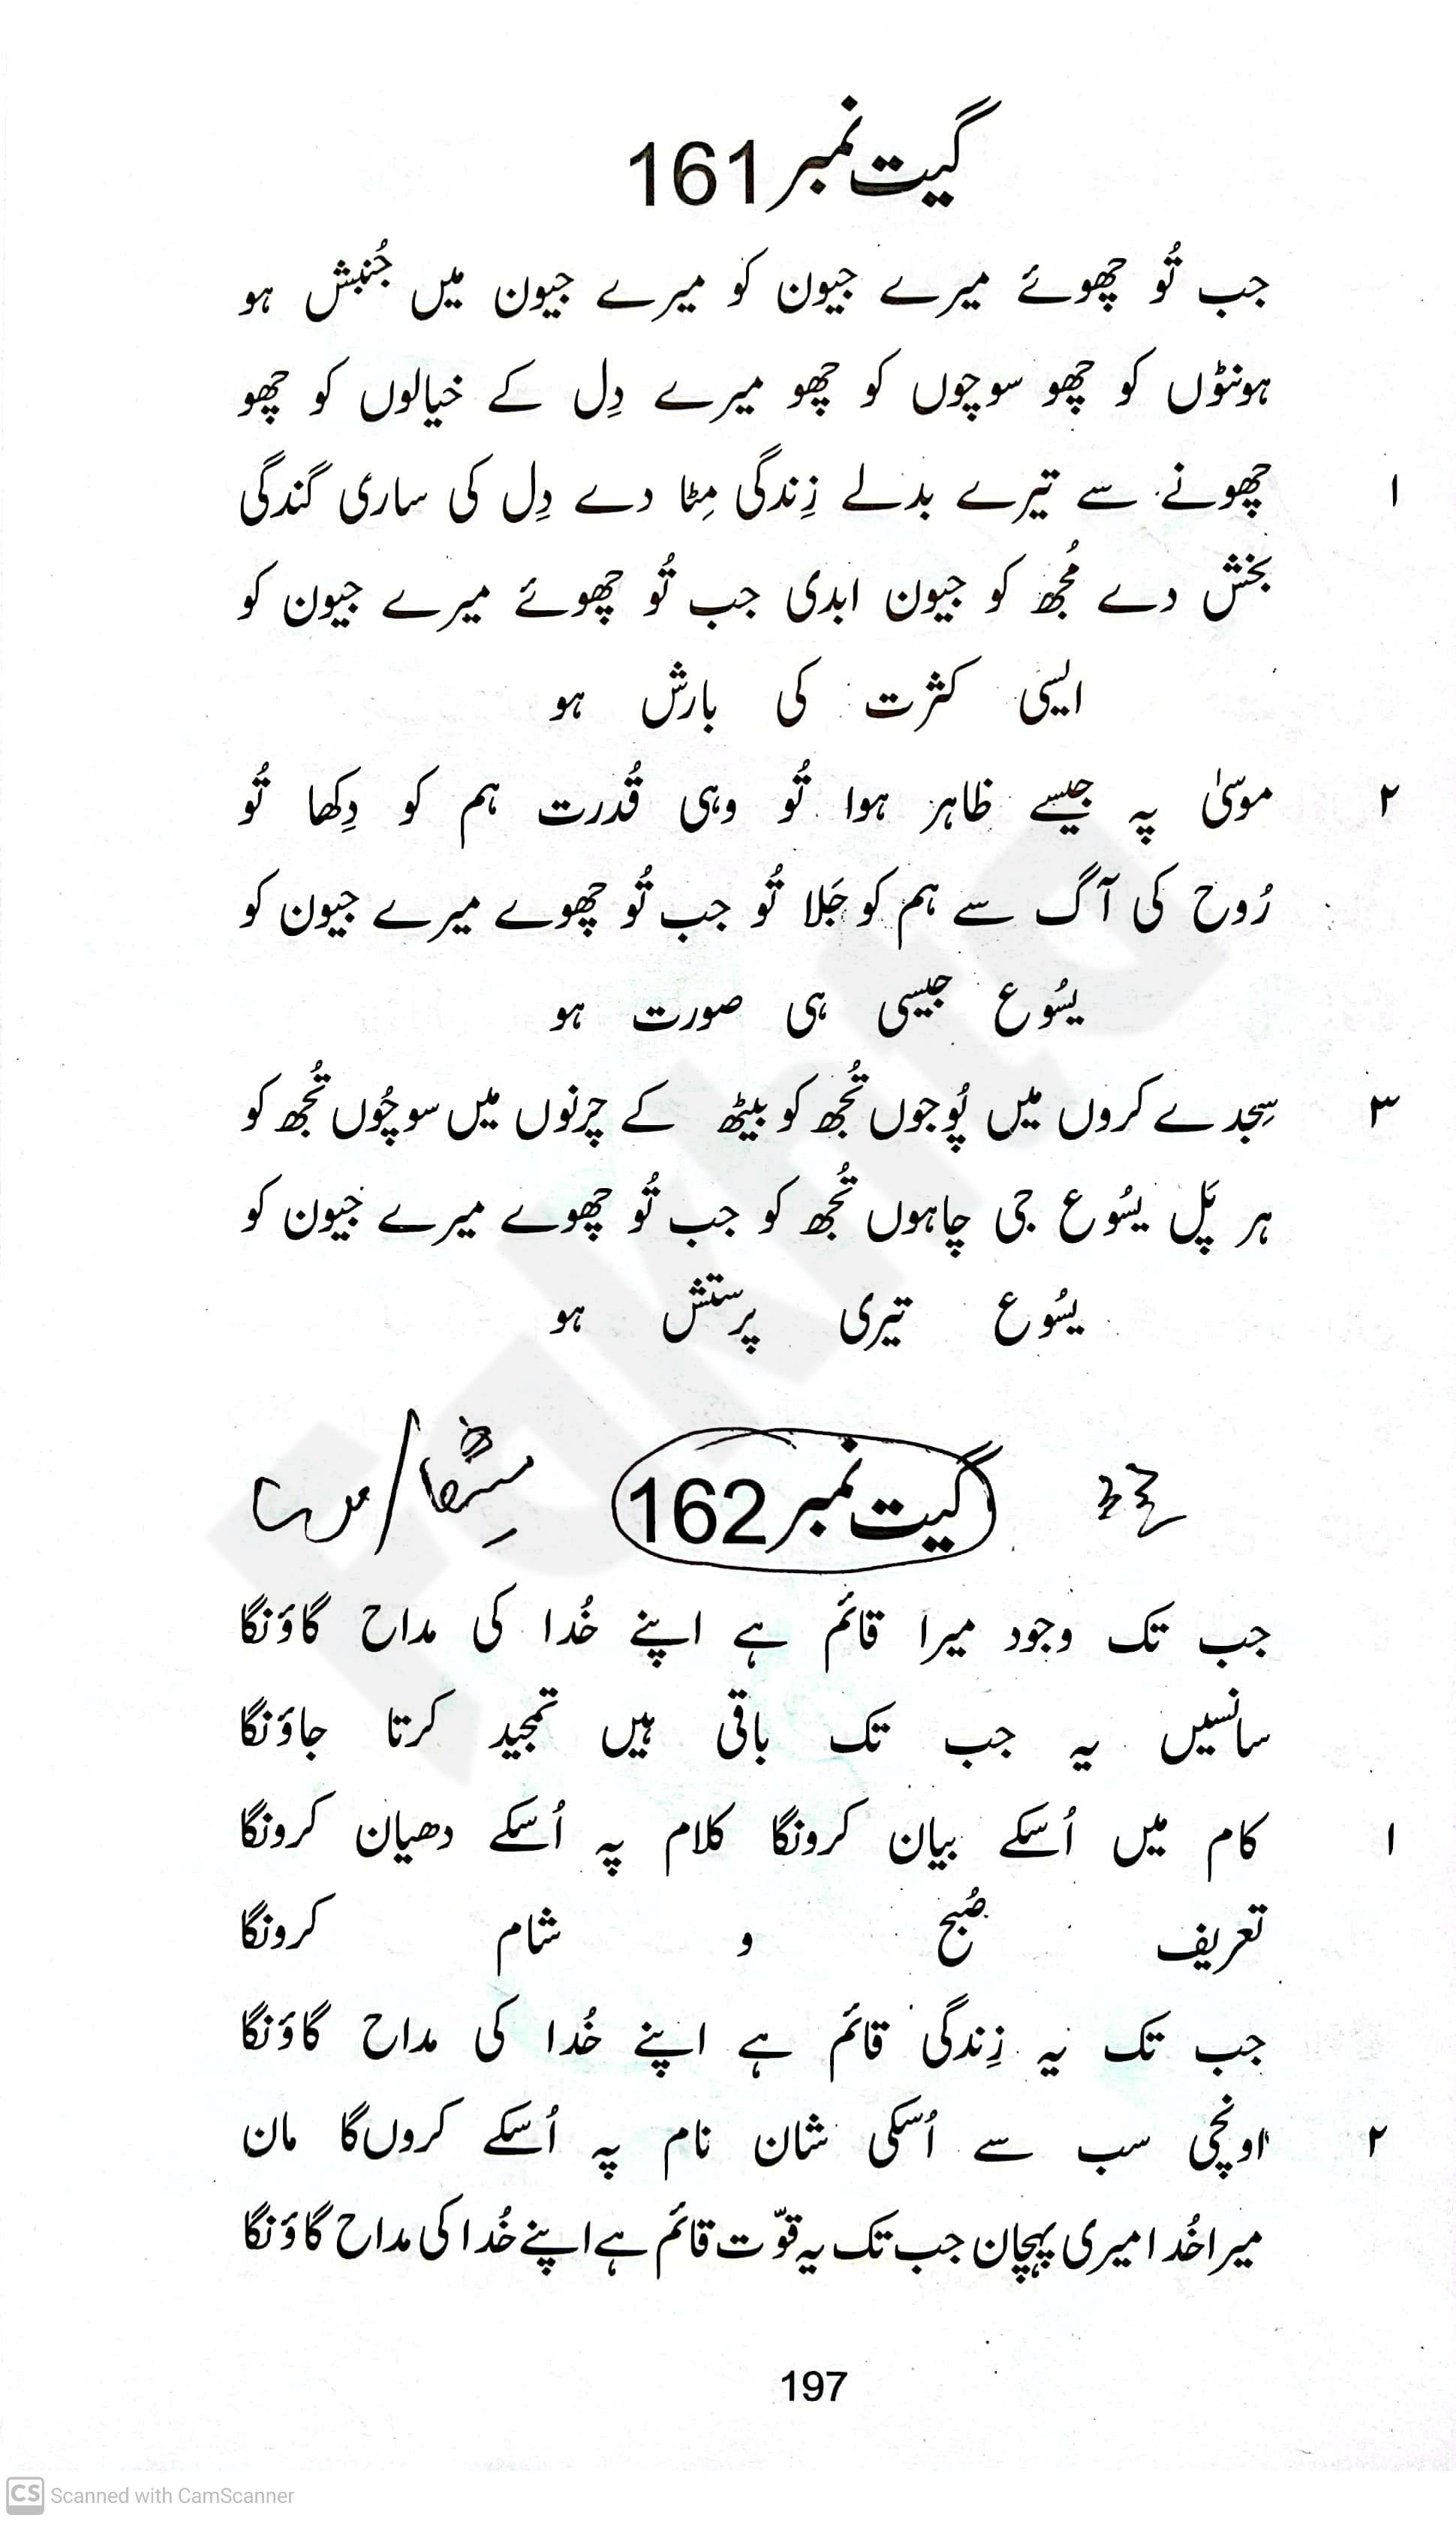 گیت نمبر 161
جب تُو چھوئے میرے جیون کو میرے جیون میں جُنبش ہو
ہونٹوں کو چھو سوچوں کو چھو میرے دِل کے خیالوں کو چھو
۱ چھونے سے تیرے بدلے زِندگی مِٹا دے دِل کی ساری گندگی
بخش دے مُجھ کو جیون ابدی جب تُو چھوئے میرے جیون کو
ایسی کثرت کی بارش ہو
۲ موسیٰ پہ جیسے ظاہر ہوا تُو وہی قُدرت ہم کو دِکھا تُو
رُوح کی آگ سے ہم کو جَلا تُو جب تُو چھوے میرے جیون کو
یسُوع جیسی ہی صورت ہو
۳ سِجدے کروں میں پُوجوں تُجھ کو بیٹھ کے چرنوں میں سوچُوں تُجھ کو
ہر پَل یسُوع جی چاہوں تُجھ کو جب تُو چھوے میرے جیون کو
یسُوع تیری پرستش ہو
گیت نمبر 162
جب تک وجود میرا قائم ہے اپنے خُدا کی مداح گاؤنگا
سانسیں یہ جب تک باقی ہیں تمجید کرتا جاؤنگا
۱ کام میں اُسکے بیان کرونگا کلام پہ اُسکے دھیان کرونگا
تعریف صُبح و شام کرونگا
جب تک یہ زِندگی قائم ہے اپنے خُدا کی مداح گاؤنگا
۲ اونچی سب سے اُسکی شان نام پہ اُسکے کروں گا مان
میرا خُدا میری پہچان جب تک یہ قوّت قائم ہے اپنے خُدا کی مداح گاؤنگا
197
CS Scanned with CamScanner